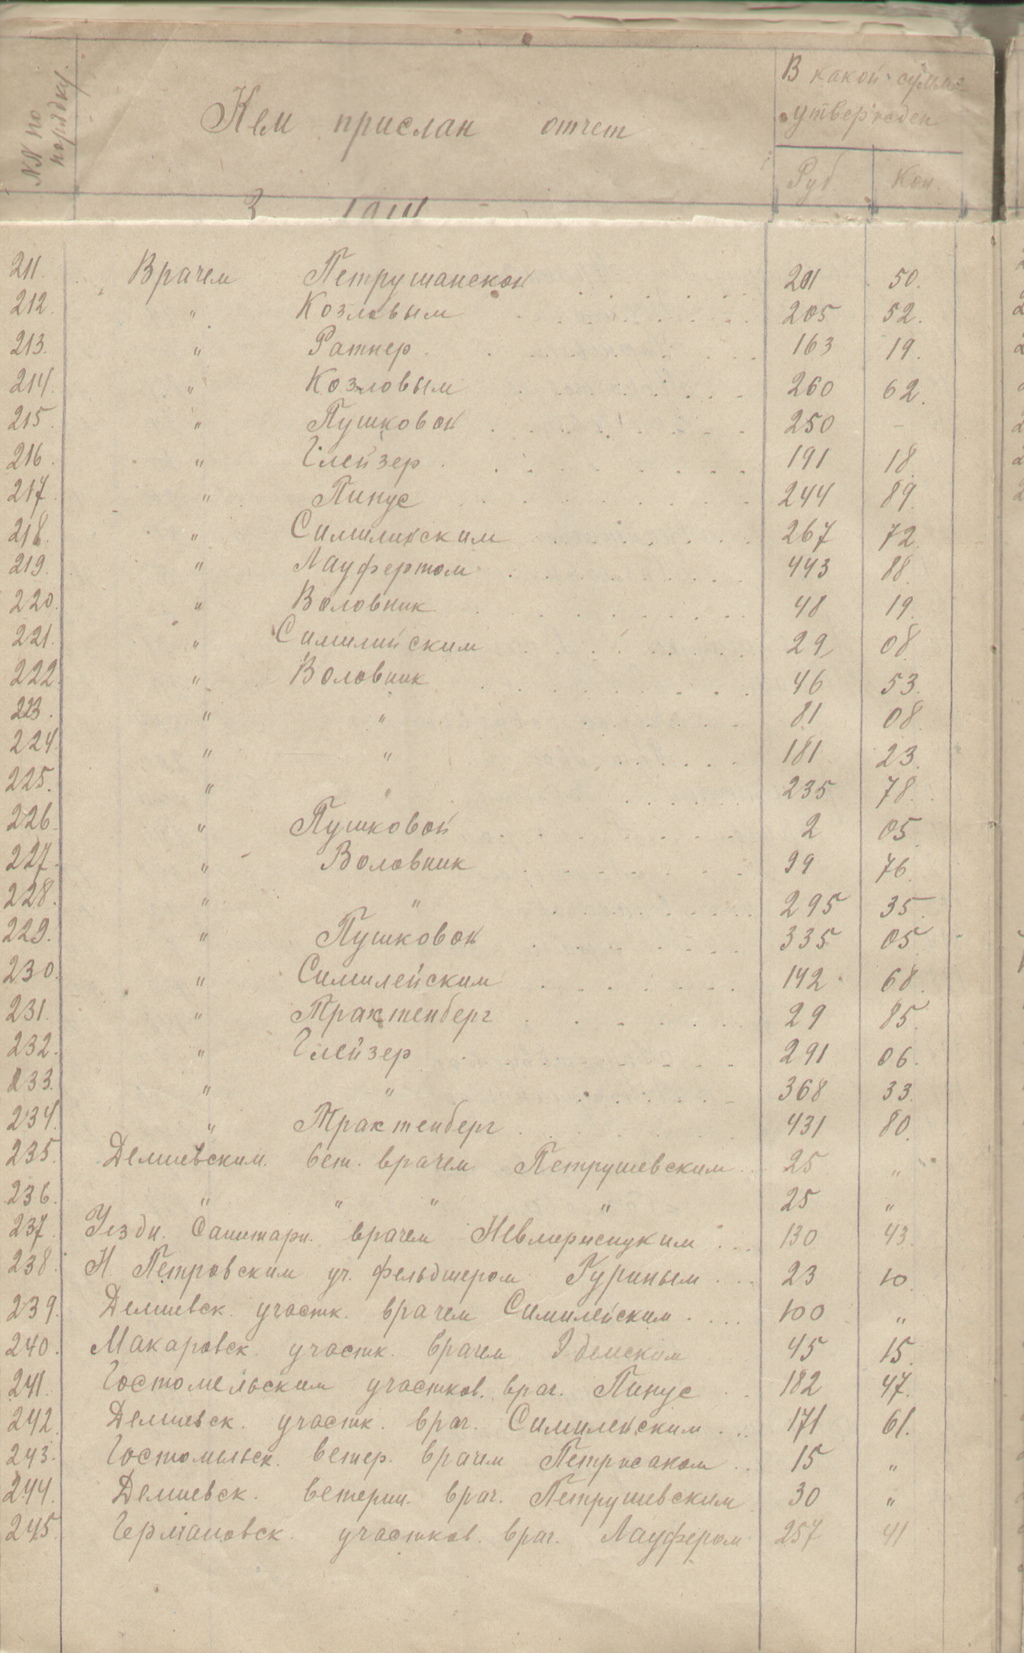 NN по порядку. Кем прислан отчет В какой сумме утвержден
Руб Коп.
211. Врачем Петрушанской 201 50.
212. " Козловым 205 52.
213. " Ратнер 163 19.
214. " Козловым 260 62.
215. " Пушковой 250 -
216. " Глейзер 191 18.
217. " Пинус 244 89.
218. " Симилийским 267 72.
219. " Лауфертом 443 88.
220. " Воловник 48 19.
221. " Симилийским 29 08
222. " Воловник 46 53.
223. " " 81 08
224. " " 181 23.
225. " " 235 78.
226. " Пушковой 2 05
227. " Воловник 99 76.
228. " " 295 35.
229. " Пушковой 335 05
230. " Симилейским 142 68
231. " Трактенберг 29 85.
232. " Глейзер 291 06.
233. " " 368 33.
234. " Трактенберг 431 80.
235. Демиевским вет. врачем Петрушевским 25 "
236. " " " " 25 "
237. Уездн. Санитарн. врачем 130 43.
238. Н Петровским уч. фельдшером Гуриным 23 10.
239. Демиевск. участк. врачем Симилейским 100 "
240. Макаровск. участк. врачем 45 15.
241. Гостомельским участков. врач. Пинус 182 47.
242. Демиевск. участк. врач. Симилейским 171 61.
243. Гостомельск. ветер. врачем 15 "
244. Демиевск. ветерин. врач. Петрушевским 30 "
245. Германовск. участков. врач. Лауфером 257 41